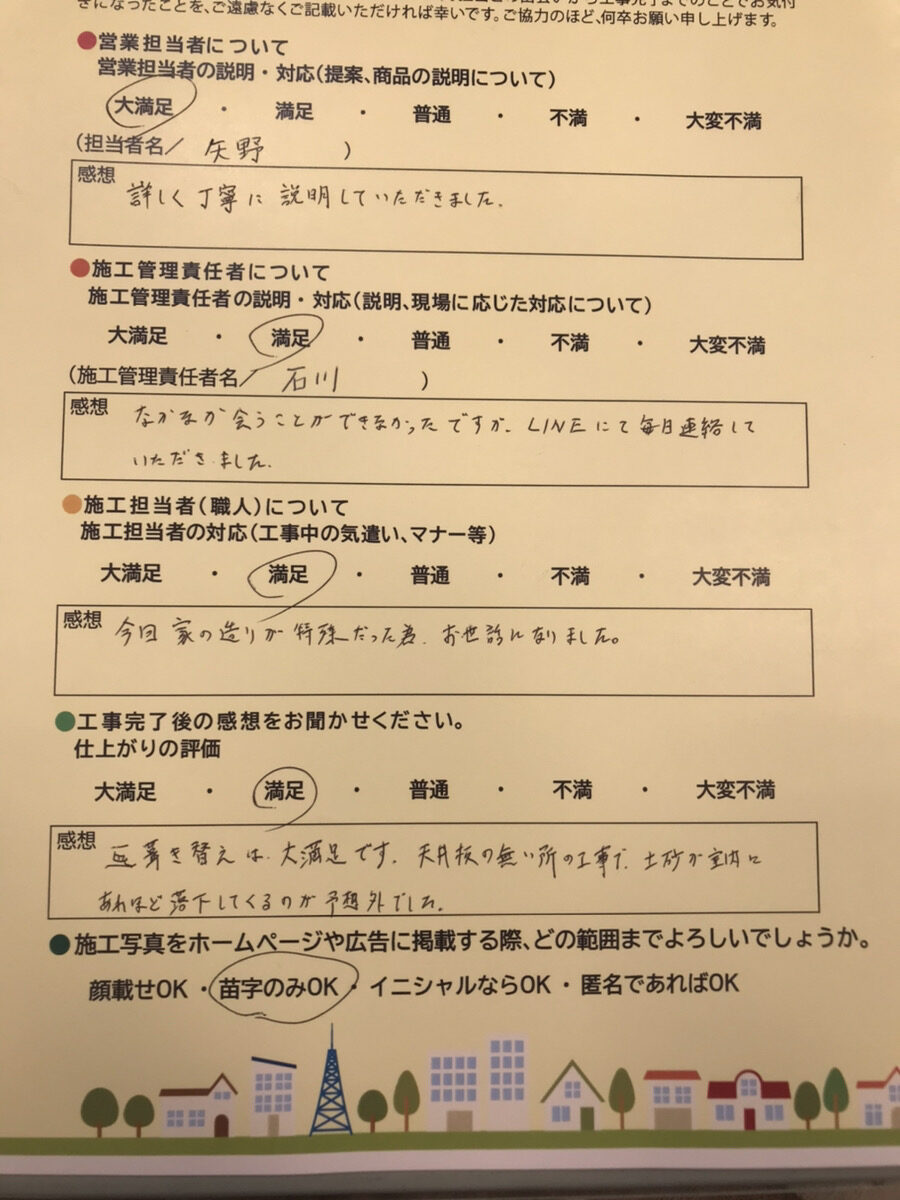 きになったことを、ご遠慮なくご記載いただければ幸いです。ご協力のほど、何卒お願い申し上げます。
●営業担当者について
営業担当者の説明・対応(提案、商品の説明について)
大満足 ・ 満足 ・ 普通 ・ 不満 ・ 大変不満
(担当者名/ 矢野 )
感想 詳しく丁寧に説明していただきました。
●施工管理責任者について
施工管理責任者の説明・対応(説明、現場に応じた対応について)
大満足 ・ 満足 ・ 普通 ・ 不満 ・ 大変不満
(施工管理責任者名/ 石川 )
感想 なかなか会うことができなかったですが、LINEにて毎日連絡して
いただきました。
●施工担当者(職人)について
施工担当者の対応(工事中の気遣い、マナー等)
大満足 ・ 満足 ・ 普通 ・ 不満 ・ 大変不満
感想 今回家の造りが特殊だった為、お世話になりました。
●工事完了後の感想をお聞かせください。
仕上がりの評価
大満足 ・ 満足 ・ 普通 ・ 不満 ・ 大変不満
感想 瓦葺き替えは、大満足です。天井板の無い所の工事で、土砂が室内に
あれほど落下してくるのが予想外でした。
●施工写真をホームページや広告に掲載する際、どの範囲までよろしいでしょうか。
顔載せOK ・ 苗字のみOK ・ イニシャルならOK ・ 匿名であればOK